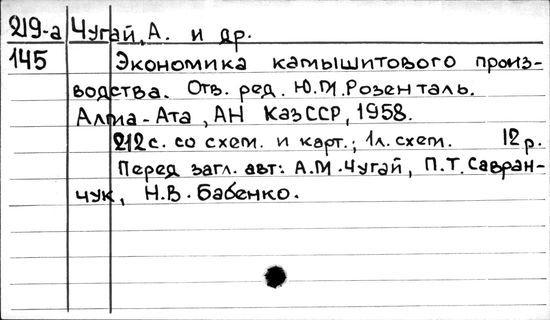 219-а Чугай, А. и др.
145 Экономика камышитового произ-
водства. Отв. ред. Ю.М.Розенталь.
Алма-Ата, АН КазССР, 1958.
212с. со схем. и карт.; 1л. схем. 12р.
Перед загл. авт: А.М.Чугай, П.Т.Савран-
чук, Н.В.Бабенко.